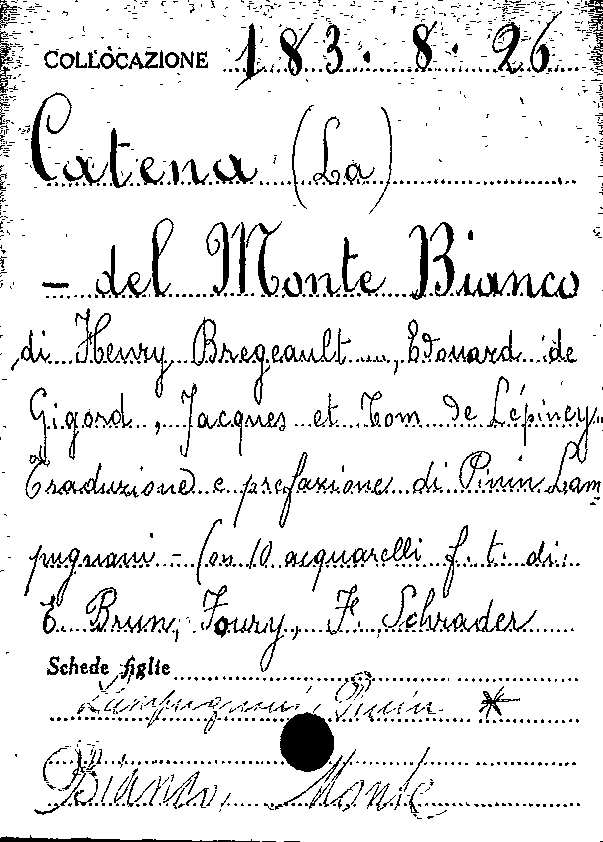 COLLOCAZIONE 183. 8. 26
Catena (La)
- del Monte Bianco
di Henry Bregeault, Edouard de
Gigord, Jacques et Tom de Lépiney.
Traduzione e prefazione di Pinin Lam-
pugnani - Con 10 acquarelli f. t. di:
E. Brun, Foury, F. Schrader
Schede figlie
Lampugnani, Pinin *
Bianco, Monte